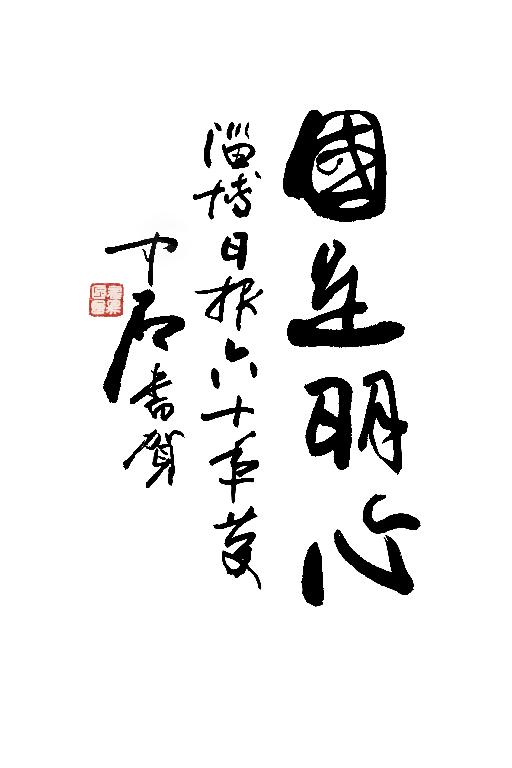 國是明心
淄博日报六十年慶
中石書賀